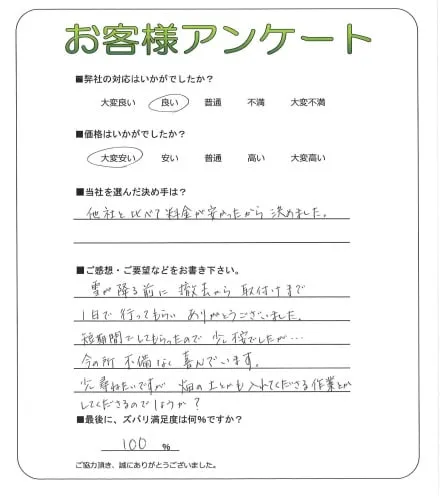 お客様アンケート
■弊社の対応はいかがでしたか?
大変良い 良い 普通 不満 大変不満
■価格はいかがでしたか?
大変安い 安い 普通 高い 大変高い
■当社を選んだ決め手は?
他社と比べて料金が安かったから決めました。
■ご感想・ご要望などをお書き下さい。
雪が降る前に撤去から取付けまで
1日で行ってもらいありがとうございました。
短期間でしてもらったので少々でしたが…
今の所不備なく喜んでいます。
少々尋ねたいですが畑の土とかも入れてくださる作業とか
してくださるのでしょうか?
■最後に、ズバリ満足度は何%ですか?
100 %
ご協力頂き、誠にありがとうございました。